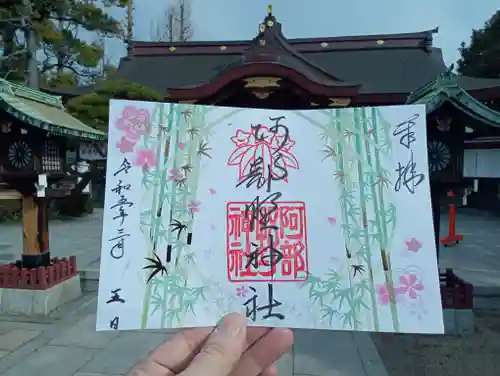 奉拝
阿部野神社
阿部野神社
令和五年三月
五日